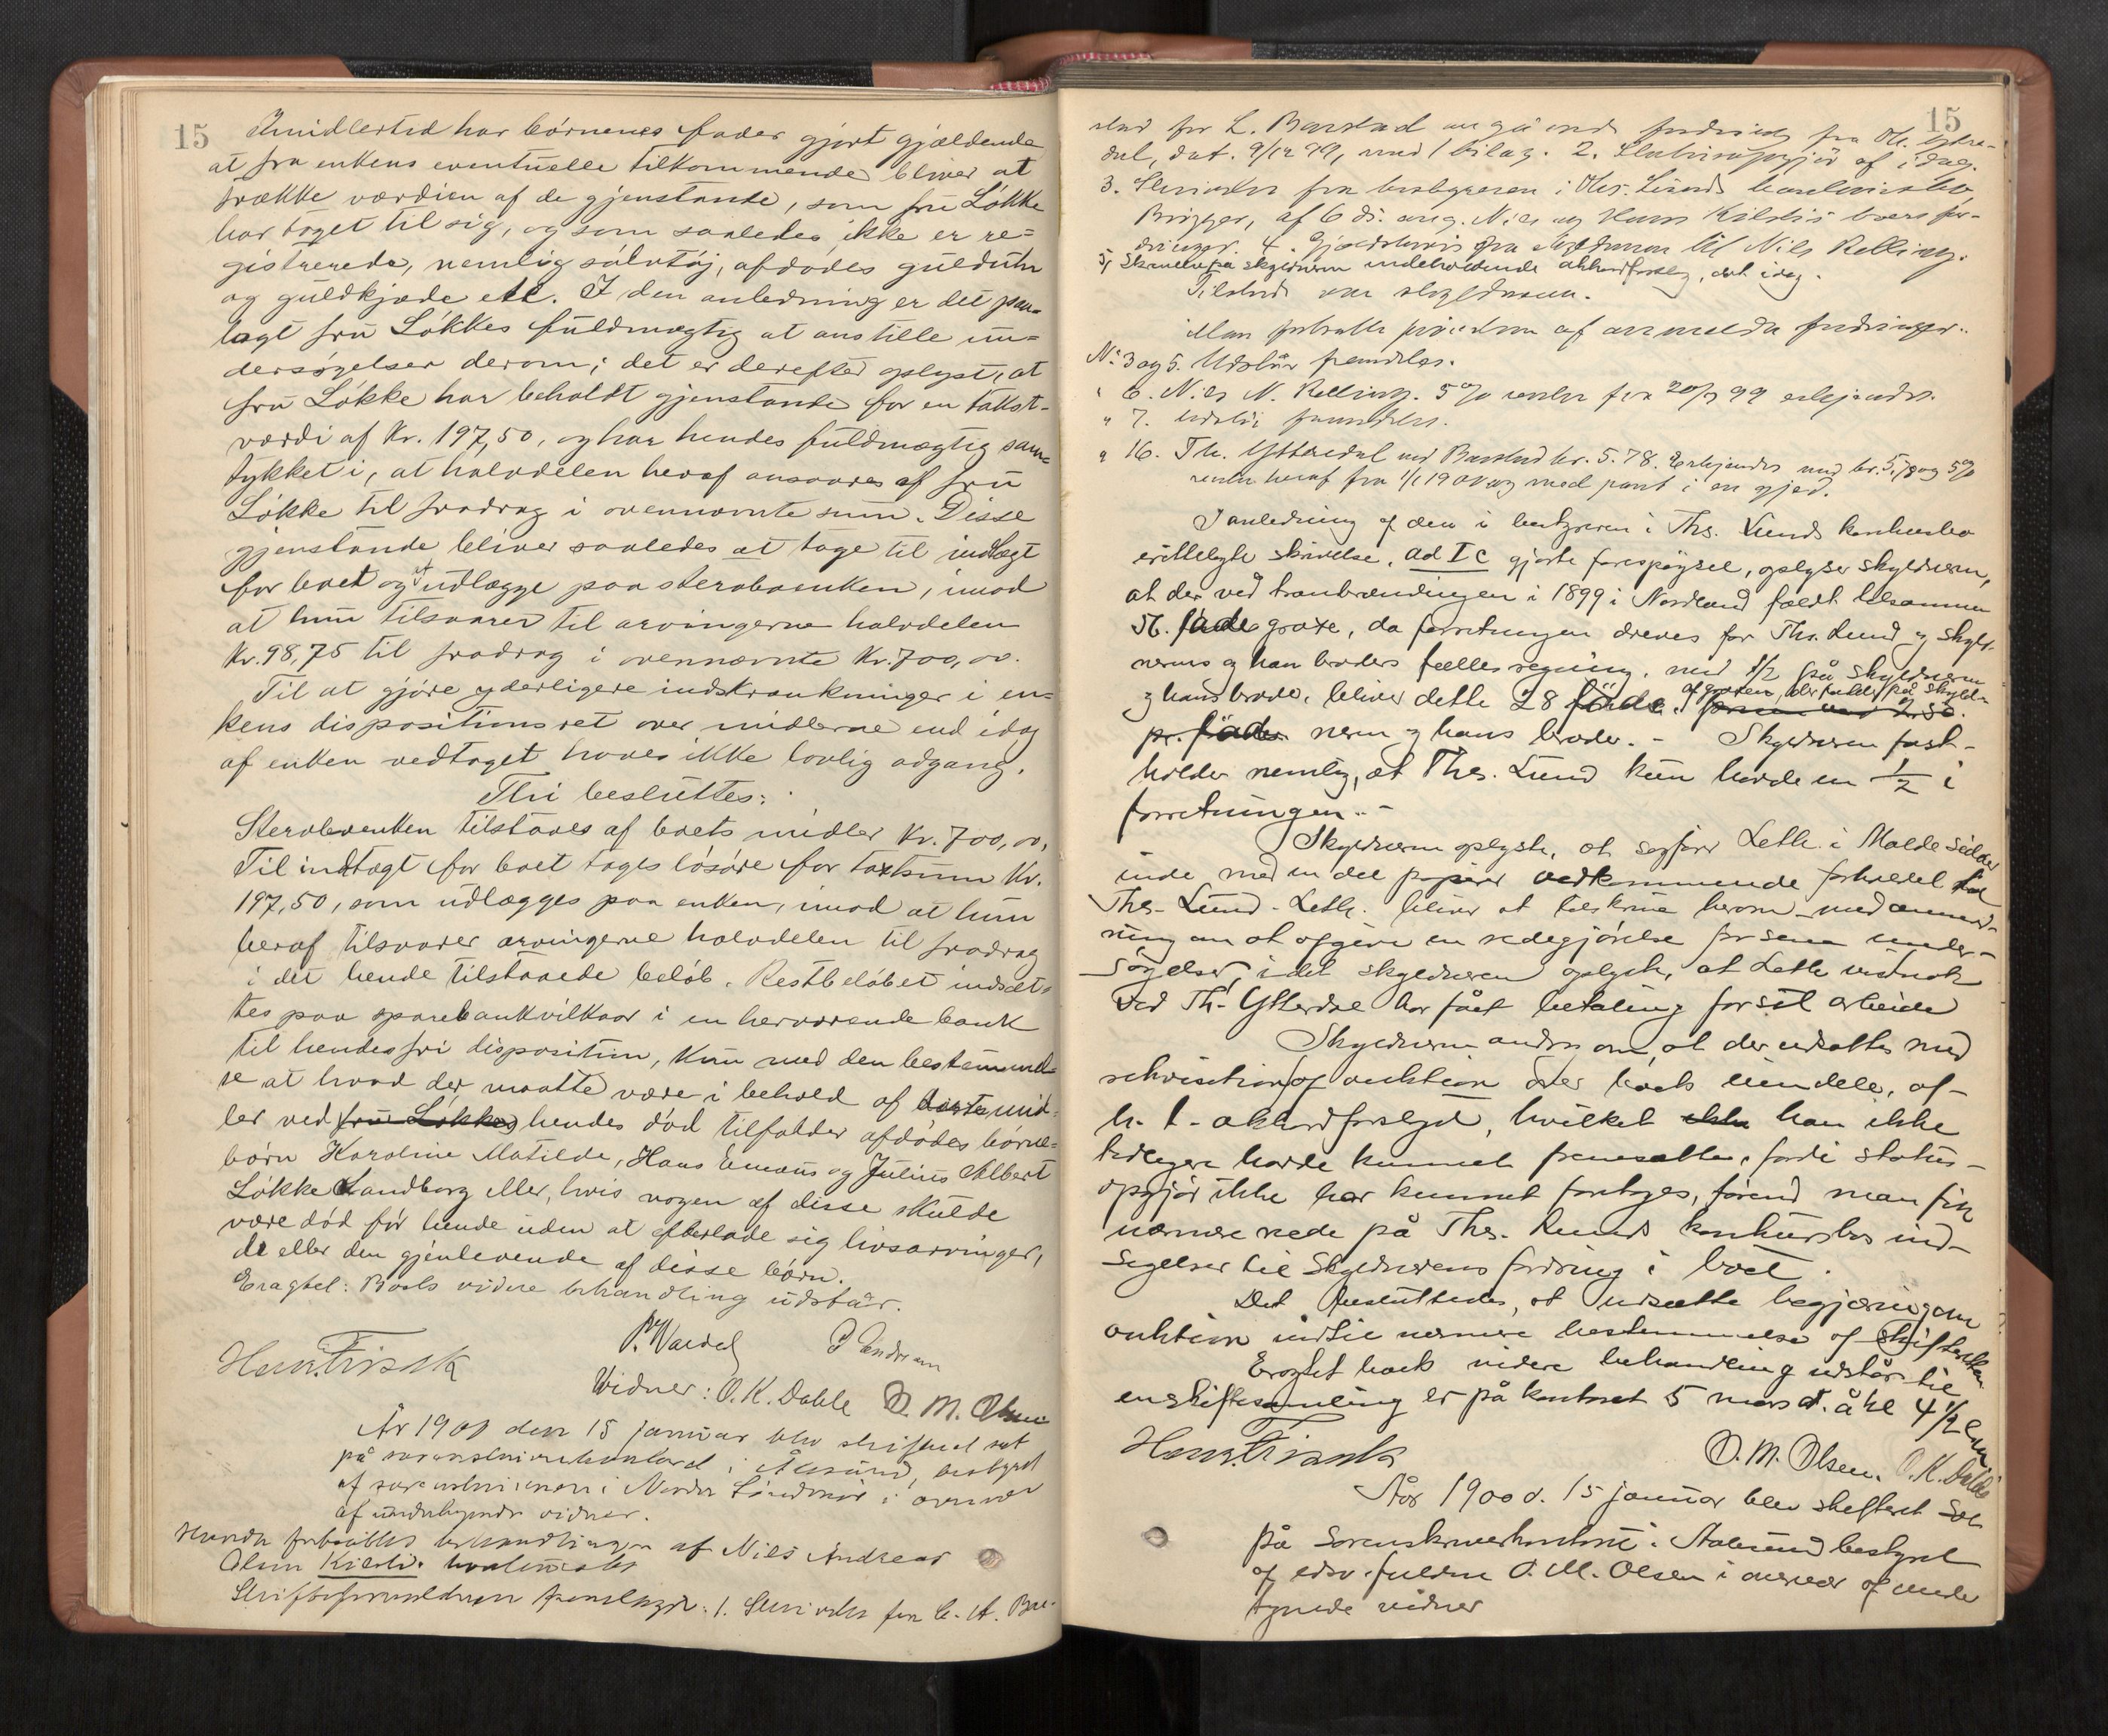 15
Imidlertid har börnenes fader gjort gjældende
at fra enkens eventuelle tilkommende bliver at
trække værdien af de gjenstande, som fru Lökke
har taget til sig, og som saaledes ikke er re=
gistrerede, nemlig sölvtöj, afdödes guldúhr
og guldkjæde etc. I den anledning er det paa-
lagt frú Lökkes fúldmægtig at anstille ún=
dersögelser derom; det er derefter oplyst, at
frú Lökke har beholdt gjenstande for en takst-
værdi af Kr. 197,50, og har hendes fúldmægtig sam=
tykket i, at halvdelen heraf ansvares af frú
Lökke til fradrag i ovennævnte súm. Disse
gjenstande bliver saaledes at tage til indtægt
for boet og at údlægge paa sterbeenken, imod
at hún tilsvarer til arvingerne halvdelen
Kr. 98,75 til fradrag i ovennævnte Kr. 700,00.
Til at gjöre yderligere indskrænkninger i en=
kens dispositionsret over midlerne end idag
af enken vedtaget haves ikke lovlig adgang.
Thi beslúttes:
Sterbeenken tilstaaes af boets midler Kr. 700,00,
Til indtægt for boet tages lösöre for taxtsúm Kr.
197,50, som údlægges paa enken, imod at hún
heraf tilsvarer arvingerne halvdelen til fradrag
i det hende tilstaaede belöb. Restbelöbet indsæt=
tes paa sparebankvilkaar i en herværende bank
til hendes fri disposition, kún med den bestemmel=
se at hvad der maatte være i behold af boets mid=
ler ved frú Lökkes hendes död tilfalder afdödes börne=
börn Karoline Matilde, Hans Emaús og Júliús Albert
Lökke Landborg eller, hvis nogen af disse skúlde
være död för hende úden at efterlade sig livsarvinger,
de eller den gjenlevende af disse börn.
Eragtet: Boets videre behandling údstaar.
P. Wardel
Vidner: O. K. Dahle O. M. Olsen
År 1900 den 15 januar blev skifteret sat
på sorenskriverkontoret i Ålesund, bestyret
af sorenskriveren i Nordre Söndmör i overvær
af undertegnede vidner.
Hvorda fortsattes behandlingen af Nils Andreas
Olsen Kilsti.
Skifteforvalteren fremlagde: 1. Skrivelse fra C. A. Bar-
15
stad for L. Barstad angående fordring fra Ole Ytre-
dal, dat. 9/12 99, med 1 bilag. 2. Statusopgjör af idag.
3. Skrivelse fra bestyreren i Ths. Lunds konkursbo
Brigger, af 6 ds. ang. Nils og Hans Kilstis boers for-
dringer. 4. Gjældsbevis fra skyldneren til Nils Relling.
5, Skrivelse fra skyldneren indeholdende akkordforslag, dat. idag.
Tilstede var skyldneren.
Man fortsatte prövelsen af anmeldte fordringer.
No 3 og 5. Udstår fremdeles.
" 6. Nils N. Relling. 5% renter fra 20/9 99 erkjendes.
" 7. Udstår fremdeles.
" 16. Th. Ytterdal ved Barstad kr. 5.78. Erkjendes med kr. 5,78 og 5%
renter heraf fra 1/1 1900 og med pant i en gjed.
I anledning af den i bestyreren i Ths. Lunds konkursbo
erittelagte skrivelse, ad I c gjorte forespörgsel, oplyser skyldneren,
at der ved tranbrændingen i 1899 i Nordland faldt tilsammen
56. fade graxe, da forretningen dreves for Ths. Lund og skyld-
nerens og hans broders fælles regning, med 1/2 på skyldneren
og hans broder, bliver dette 28 fade af graxen, der falder på skyld-
pr. fade neren og hans broder. - Skyldneren fast-
holder nemlig, at Ths. Lund kun havde en 1/2 i
forretningen. -
Skyldneren oplyste, at sagförer Leth i Molde sidder
inde med en del papirer vedkommende forholdet til
Ths. Lund. Leth. bliver at tilskrive herom med anmod-
ning om at afgive en redegjörelse for sine under-
sögelser, idet skyldneren oplyste, at Leth
ved Th. Ytterdal har fået betaling for sit arbeide
Skyldneren andrer om, at der udsættes med
rekvisition af auktion over boets eiendele, af-
h. t. akkordforslaget, hvilket ikke han ikke
tidligere havde kunnet fremsætte, fordi status-
opgjör ikke har kunnet foretages, förend man fik
nærmere rede på Ths. Lunds konkursbos ind-
sigelser til skyldnerens fordring i boet.
Det besluttedes, at udsætte begjæring om
auktion indtil nærmere bestemmelse af skifteretten
Eragtet boets videre behandling udstår til
en skiftesamling er på kontoret 5 mars d. å kl 4 1/2 em
O. M. Olsen. O. K. Dahle
Aar 1900 d. 15 januar blev skifteret sat
på Sorenskriverkontoret i Aalesund bestyret
af edsv. fuldm O. M. Olsen i overvær af under
tegnede vidner